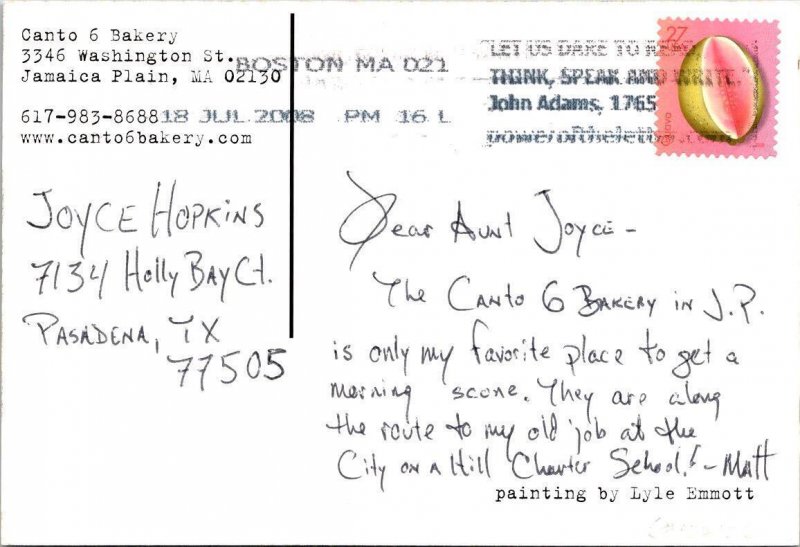 Canto 6 Bakery
3346 Washington St.
Jamaica Plain, MA 02130
617-983-8688
www.canto6bakery.com
BOSTON MA 021
18 JUL 2008 PM 16 L
LET US DARE TO READ
THINK, SPEAK AND WRITE."
John Adams, 1765
27
Guava
JOYCE HOPKINS
7134 Holly Bay Ct.
PASADENA, TX
77505
Dear Aunt Joyce -
The CANTO 6 BAKERY in J.P.
is only my favorite place to get a
morning scone. They are along
the route to my old job at the
City on a Hill Charter School! - Matt
painting by Lyle Emmott